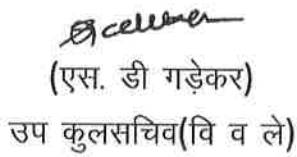 (एस. डी गड़ेकर)
उप कुलसचिव(वि व ले)